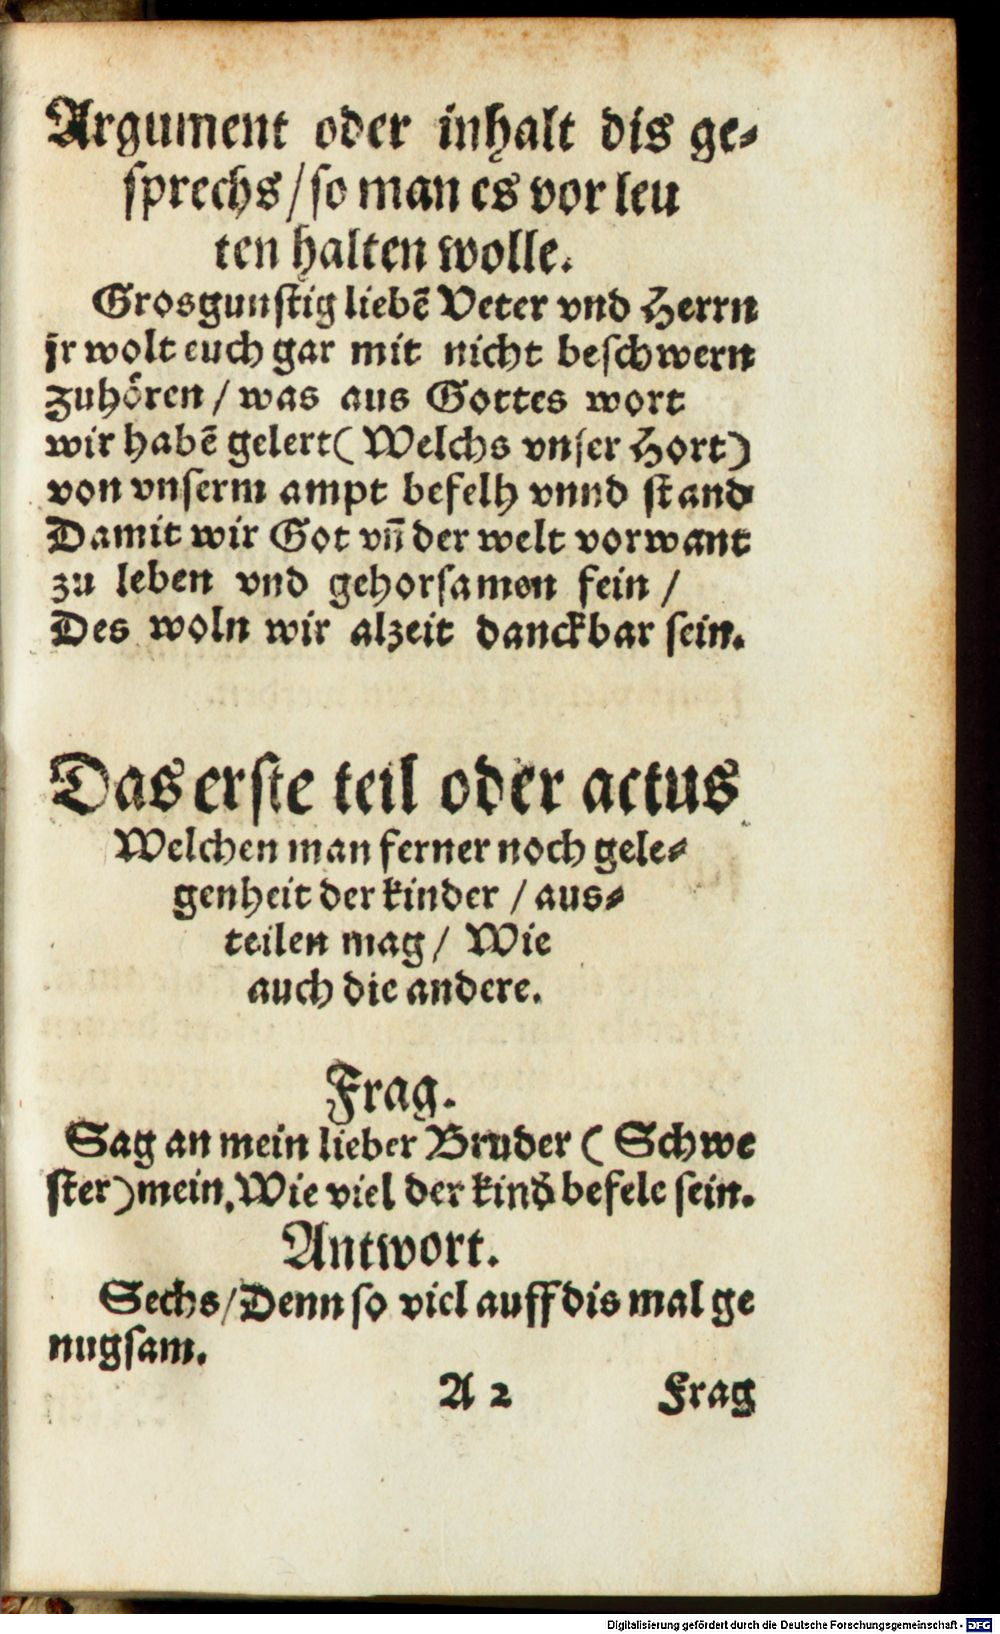 Argument oder inhalt dis ge⸗
sprechs/so man es vor leu
ten halten wolle.
Grosgunstig liebē Veter vnd Herrn
jr wolt euch gar mit nicht beschwern
zuhören / was aus Gottes wort
wir habē gelert( Welchs vnser Hort)
von vnserm ampt befelh vnnd stand
Damit wir Got vn̄ der welt vorwant
zu leben vnd gehorsamen fein /
Des woln wir alzeit danckbar sein.
Das erste teil oder actus
Welchen man ferner noch gele⸗
genheit der kinder / aus⸗
teilen mag/ Wie
auch die andere.
Frag.
Sag an mein lieber Bruder ( Schwe
ster)mein, Wie viel der kind befele sein.
Antwort.
Sechs/Denn so viel auff dis mal ge
nugsam.
A 2 Frag
Digitalisierung gefördert durch die Deutsche Forschungsgemeinschaft - DFG